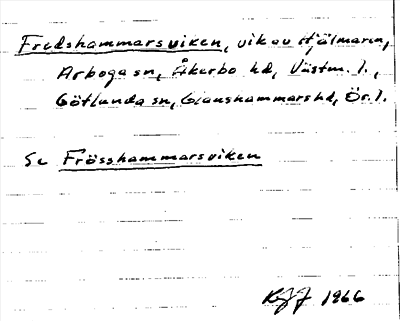 Fredshammarsviken, vik av Hjälmaren,
Arboga sn, Åkerbo hd, Västm. l.,
Götlunda sn, Glanshammars hd, Ör. l.
Se Frösshammarsviken
1966